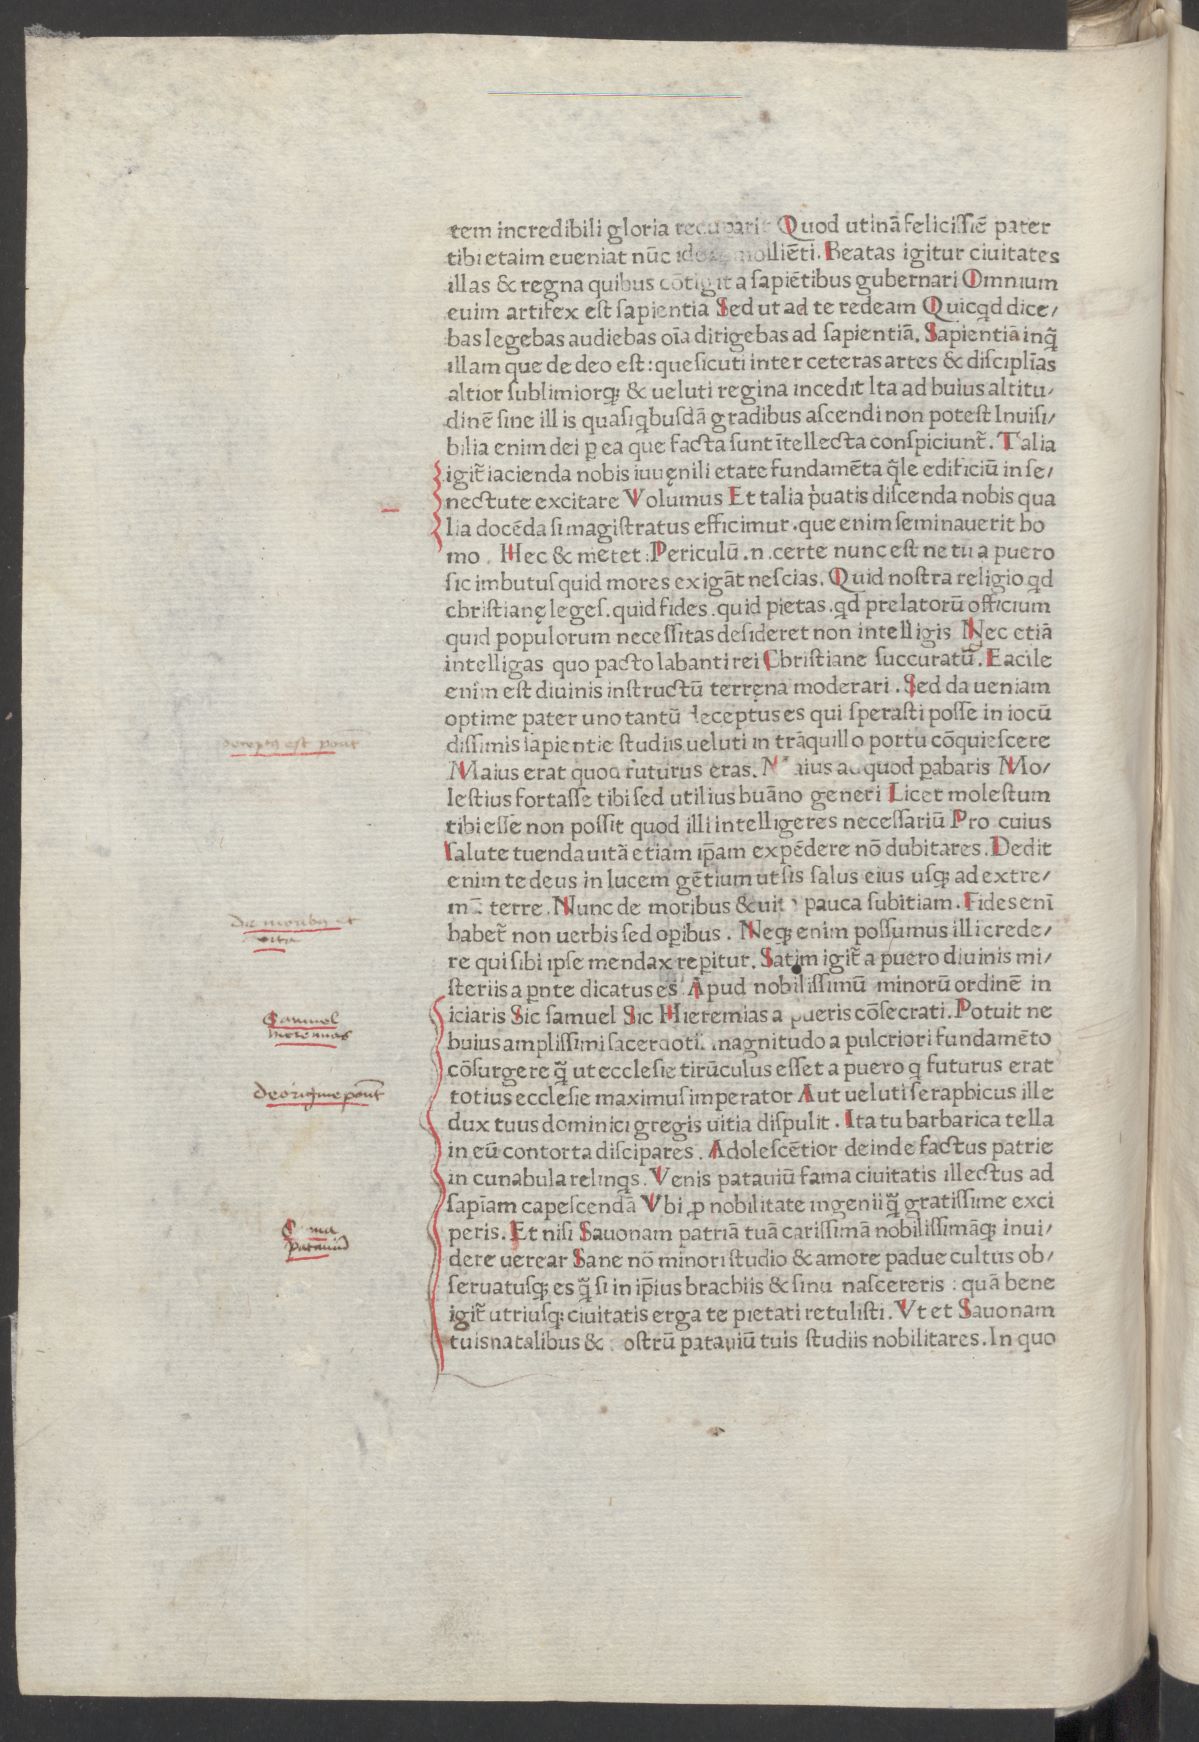 tem incredibili gloria recuparit Quod utinā feliciſſiē pater
tibi etaim eueniat nūc molliēti. Beatas igitur ciuitates
illas & regna quibus cōtigit a ſapiētibus gubernari Omnium
euim artifex eſt ſapientia Sed ut ad te redeam Quicq̄d dice/
bas legebas audiebas oīa dirigebas ad ſapientiā. Sapientiā inq̄
illam que de deo eſt: que ſicuti inter ceteras artes & diſciplīas
altior ſublimiorq; & ueluti regina incedit Ita ad huius altitu/
dinē ſine ill is quaſi q̄buſdā gradibus aſcendi non poteſt Inuiſi/
bilia enim dei p̱ ea que facta ſunt ītellecta conſpiciunt᷑. Talia
igit᷑ iacienda nobis iuuęnili etate fundamēta q̄le edificiū in ſe/
nectute excitare Volumus Et talia p̓uatis diſcenda nobis qua
lia docēda ſi magiſtratus efficimur . que enim ſeminauerit ho
mo . Hec & metet : Periculū . n . certe nunc eſt ne tu a puero
ſic imbutuſ quid mores exigāt neſcias. Quid noſtra religio q̄d
chriſtianę legeſ . quid fides . quid pietas . q̄d prelatorū officium
quid populorum neceſſitas deſideret non intelligis Nec etiā
intelligas quo pacto labanti rei Chriſtiane ſuccuratū . Facile
enim eſt diuinis inſtructū terręna moderari . Sed da ueniam
optime pater uno tantū deceptus es qui ſperaſti poſſe in iocū
diſſimis ſapientie ſtudiis ueluti in trāquillo portu cōquieſcere
Maius erat quod futurus eras. Maius ad quod p̱abaris Mo/
leſtius fortaſſe tibi ſed utilius huāno generi Licet moleſtum
tibi eſſe non poſſit quod illi intelligeres neceſſariū Pro cuius
ſalute tuenda uitā etiam ip̄am expēdere nō dubitares. Dedit
enim te deus in lucem gētium ut ſis ſalus eius uſq; ad extre/
mū terre. Nunc de moribus & uita pauca ſubitiam. Fides enī
habet᷑ non uerbis ſed op̱ibus . Neq; enim poſſumus illi crede/
re qui ſibi ipſe mendax rep̱itur. Satim igit᷑ a puero diuinis mi/
ſteriis a p̱nte dicatus es Apud nobiliſſimū minorū ordinē in
iciaris Sic ſamuel Sic Hieremias a pueris cōſecrati. Potuit ne
huius ampliſſimi ſacerdotii magnitudo a pulcriori fundamēto
cōſurgere q̄ ut eccleſie tirūculus eſſet a puero q futurus erat
totius eccleſie maximuſ imperator Aut ueluti ſeraphicus ille
dux tuus dominici gregis uitia diſpulit . Ita tu barbarica tella
in eū contorta diſcipares . Adoleſcētior deinde factus patrie
in cunabula relinq̄s. Venis patauiū fama ciuitatis illectus ad
ſapīam capeſcendā Vbi ꝓ nobilitate ingenii q̄ gratiſſime exci
peris. Et niſi Sauonam patriā tuā cariſſimā nobiliſſimāq; inui/
dere uerear Sane nō minori ſtudio & amore padue cultus ob/
ſeruatuſq; es q̄ ſi in ip̄ius brachiis & ſinu naſcereris : quā bene
igit᷑ utriuſq; ciuitatis erga te pietati retuliſti. Vt et Sauonam
tuis natalibus & noſtrū patauiū tuis ſtudiis nobilitares. In quo
deceptq est pont
De moribq et
vita
Samuel
hieremias
de origine pont
patavin̄